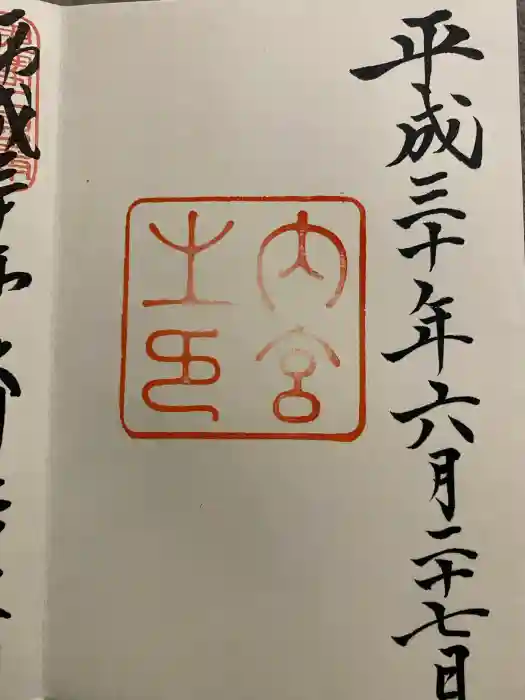 平成三十年六月二十七日
内宮
之印